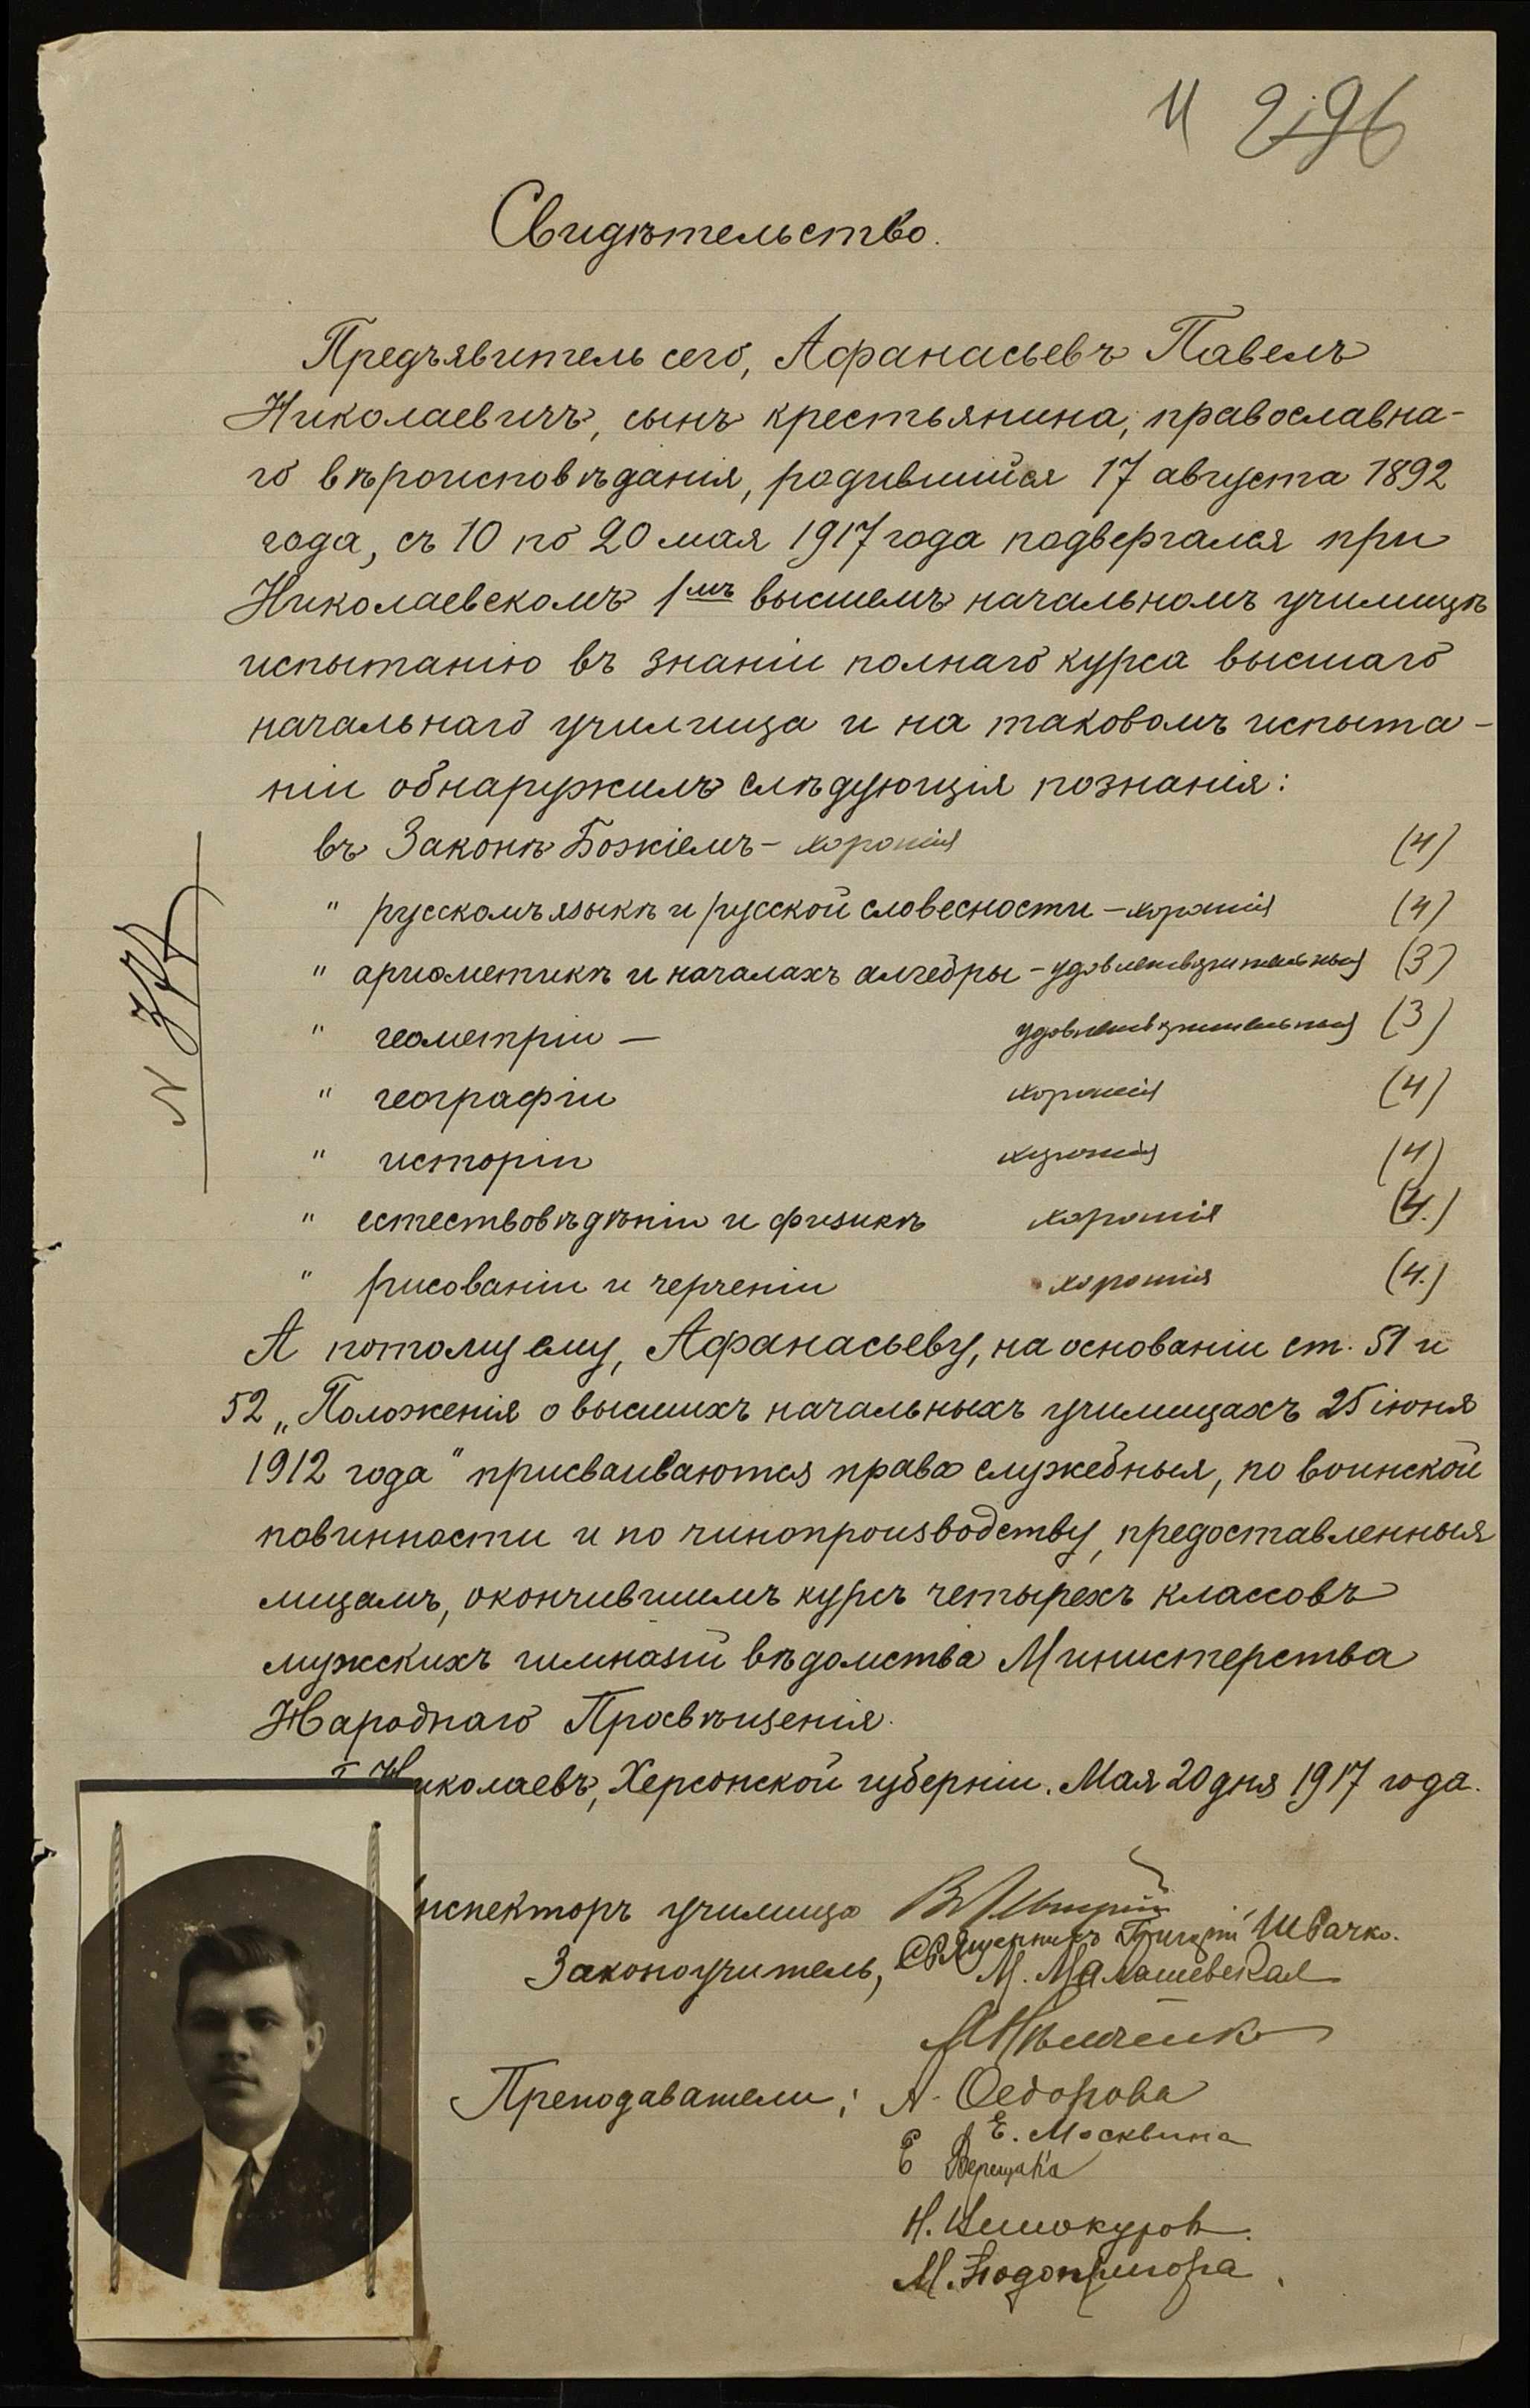 296
Свидѣтельство.
Предъявитель сего, Афанасьевъ Павелъ
Николаевичъ, сынъ крестьянина, православна-
го вѣроисповѣданія, родившийся 17 августа 1892
года, съ 10 по 20 мая 1917 года подвергался при
Николаевскомъ 1мъ высшемъ начальномъ училищѣ
испытанію въ знаніи полнаго курса высшаго
начальнаго училища и на таковомъ испыта-
ніи обнаружилъ слѣдующія познанія:
въ Законѣ Божіемъ - хорошія (4)
" русскомъ языкѣ и русской словесности - хорошія (4)
" ариѳметикѣ и началахъ алгебры - удовлетворительныя (3)
" геометріи - удовлетворительныя (3)
" географіи хорошія (4)
" исторіи хорошія (4)
" естествовѣдѣніи и физикѣ хорошія (4.)
" рисованіи и черченіи хорошія (4.)
N
А потому ему, Афанасьеву, на основаніи ст. 51 и
52 „Положенія о высшихъ начальныхъ училищахъ 25 іюня
1912 года" присваиваются права служебныя, по воинской
повинности и по чинопроизводству, предоставленныя
лицамъ, окончившимъ курсъ четырехъ классовъ
мужскихъ гимназій вѣдомства Министерства
Народнаго Просвѣщенія.
Г. Николаевъ, Херсонской губерніи. Мая 20 дня 1917 года.
нспекторъ училища
Законоучитель, Священникъ Григорій Швачко.
М. Малашевская
Преподаватели: А. Ѳедорова
Е. Москвина
Е Верещака
Н. Винокуров.
М. Подопригора.